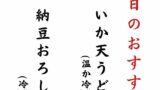 日のおすす
いか天うど
(温か冷
納豆おろし
(冷